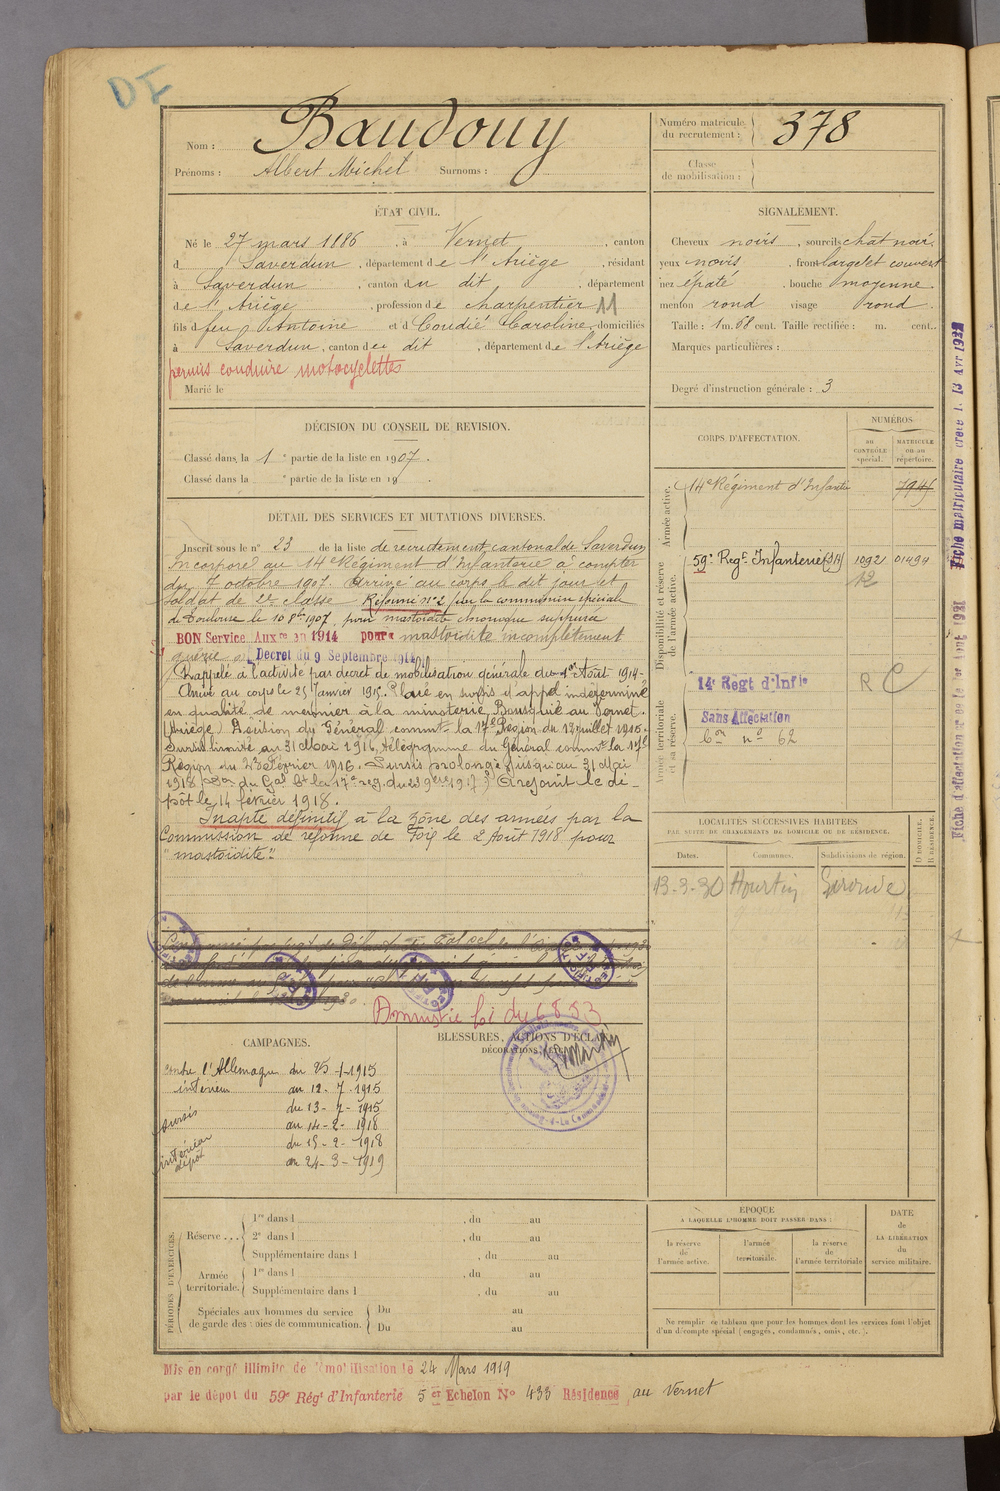 DI
Nom : Baudouy
Prénoms : Albert Michel Surnoms :
Numéro matricule du recrutement : 378
Classe de mobilisation :
ÉTAT CIVIL.
Né le 27 mars 1886, à Vernet, canton
d Saverdun, département de l'Ariège, résidant
à Saverdun, canton du dit, département
de l'Ariège, profession de charpentier 11
fils d feu Antoine et d Coudié Caroline, domiciliés
à Saverdun, canton du dit, département de l'Ariège
permis conduire motocyclettes
Marié le
SIGNALEMENT.
Cheveux noirs, sourcils chat noir.
yeux noirs, front large et couvert
nez épaté, bouche moyenne
menton rond visage rond.
Taille : 1 m. 68 cent. Taille rectifiée : m. cent.
Marques particulières :
Degré d'instruction générale : 3
DÉCISION DU CONSEIL DE REVISION.
Classé dans la 1e partie de la liste en 1907.
Classé dans la e partie de la liste en 19 .
DÉTAIL DES SERVICES ET MUTATIONS DIVERSES.
Inscrit sous le n° 23 de la liste de recrutement cantonal de Saverdun
Incorporé au 14e Régiment d'Infanterie à compter
du 7 octobre 1907. Arrivé au corps le dit jour et
soldat de 2e classe Réformé n°2 par la commission spéciale
de Toulouse le 10 8bre 1907, pour mastoïdite chronique suppurée
BON Service Auxre en 1914 pour mastoïdite incomplètement
guérie Decret du 9 Septembre 1914
Rappelé à l'activité par décret de mobilisation générale du 1er Août 1914-
Arrivé au corps le 25 Janvier 1915. Placé en sursis d'appel indéterminé
en qualité de meunier à la minoterie Bousquié au Vernet.
(Ariège) Décision du Général commt la 17e Région du 13 juillet 1915.
Sursis limité au 31 Mai 1916, télégramme du Général commt la 17e
Région du 23 Février 1916. Sursis prolongé jusqu'au 31 Mai
1918 Don du Gal Ct la 17e reg. du 23 9bre 1917. A rejoint le dé-
pôt le 14 février 1918.
Inapte définitif à la zône des armées par la
Commission de réforme de Foix le 2 Août 1918 pour
"mastoïdite".
Amnistie loi du 6.8.53
CORPS D'AFFECTATION.
NUMÉROS
AU CONTRÔLE spécial.
MATRICULE ou au répertoire.
Armée active.
14e Régiment d'Infanterie 7941
Disponibilité et réserve de l'armée active.
59e Regt Infanterie (SA) 1092 01494
12
Armée territoriale et sa réserve.
14e Régt d'Infie R C
Sans Affectation
Con n° 62
LOCALITÉS SUCCESSIVES HABITÉES
PAR SUITE DE CHANGEMENTS DE DOMICILE OU DE RÉSIDENCE.
Dates. Communes. Subdivisions de région. D DOMICILE. R RÉSIDENCE.
13-3-30 Hourtin Gironde
CAMPAGNES.
contre l'Allemagne du 25-1-1915
intérieur au 12-7-1915
sursis du 13-7-1915
au 14-2-1918
intérieur dépôt du 15-2-1918
au 24-3-1919
BLESSURES, ACTIONS D'ÉCLAT,
DÉCORATIONS, ETC.
PÉRIODES D'EXERCICES.
Réserve ... 1re dans l , du au
2e dans l , du au
Supplémentaire dans l , du au
Armée territoriale. 1re dans l , du au
Supplémentaire dans l , du au
Spéciales aux hommes du service de garde des voies de communication. Du au
Du au
EPOQUE
A LAQUELLE L'HOMME DOIT PASSER DANS :
la réserve de l'armée active.
l'armée territoriale.
la réserve de l'armée territoriale
DATE de LA LIBÉRATION du service militaire.
Ne remplir ce tableau que pour les hommes dont les services font l'objet
d'un décompte spécial (engagés, condamnés, omis, etc.).
Mis en congé illimité de démobilisation le 24 Mars 1919
par le dépôt du 59e Régt d'Infanterie 5e Echelon N° 433 Résidence au Vernet
Fiche matriculaire créée le 13 Avr 1932